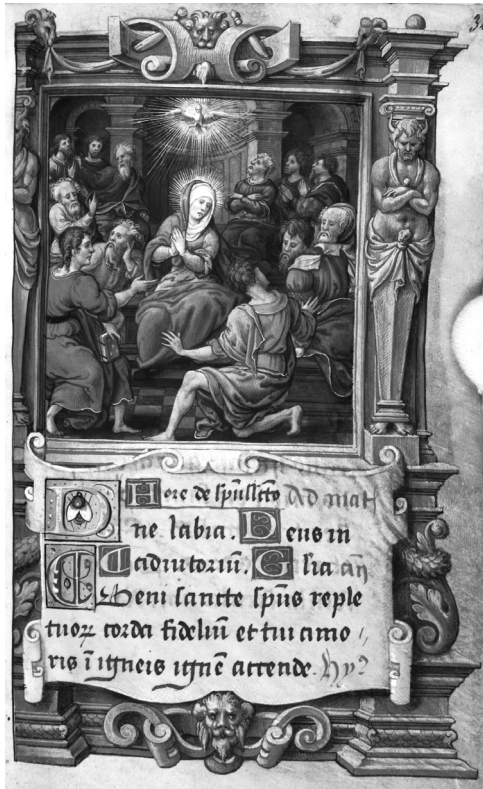 3
Hore de spūssctō Ad mat
D ne labia. Deus in
adiutoriū. Glia añ
Veni sancte spūs reple
tuoꝝ corda fideliū et tui amo
ris ī igneis ignē accende. hyꝰ